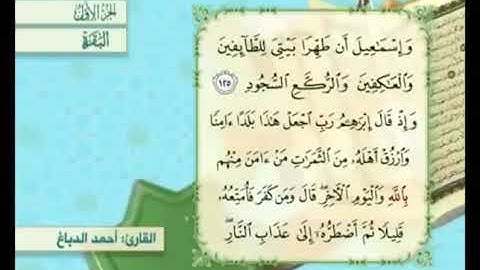 الجزء الأول
البقرة
وَإِسْمَٰعِيلَ أَن طَهِّرَا بَيْتِىَ لِلطَّآئِفِينَ
وَٱلْعَٰكِفِينَ وَٱلرُّكَّعِ ٱلسُّجُودِ ١٢٥
وَإِذْ قَالَ إِبْرَٰهِـۧمُ رَبِّ ٱجْعَلْ هَٰذَا بَلَدًا ءَامِنًا
وَٱرْزُقْ أَهْلَهُۥ مِنَ ٱلثَّمَرَٰتِ مَنْ ءَامَنَ مِنْهُم
بِٱللَّهِ وَٱلْيَوْمِ ٱلْـَٔاخِرِ ۖ قَالَ وَمَن كَفَرَ فَأُمَتِّعُهُۥ
قَلِيلًا ثُمَّ أَضْطَرُّهُۥٓ إِلَىٰ عَذَابِ ٱلنَّارِ ۖ
القارئ: أحمد الدباغ